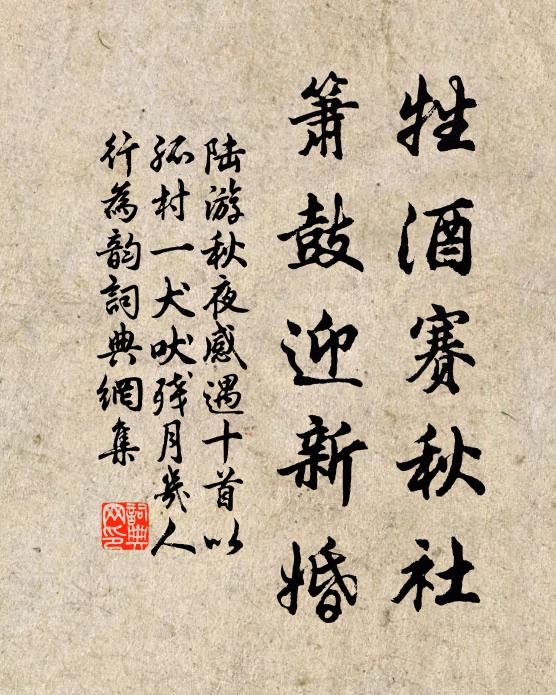 牲酒賽秋社
簫鼓迎新婚
陆游秋夜感遇十首以
孤村一犬吠残月幾人
行為韵詞典網集
詞典
网印